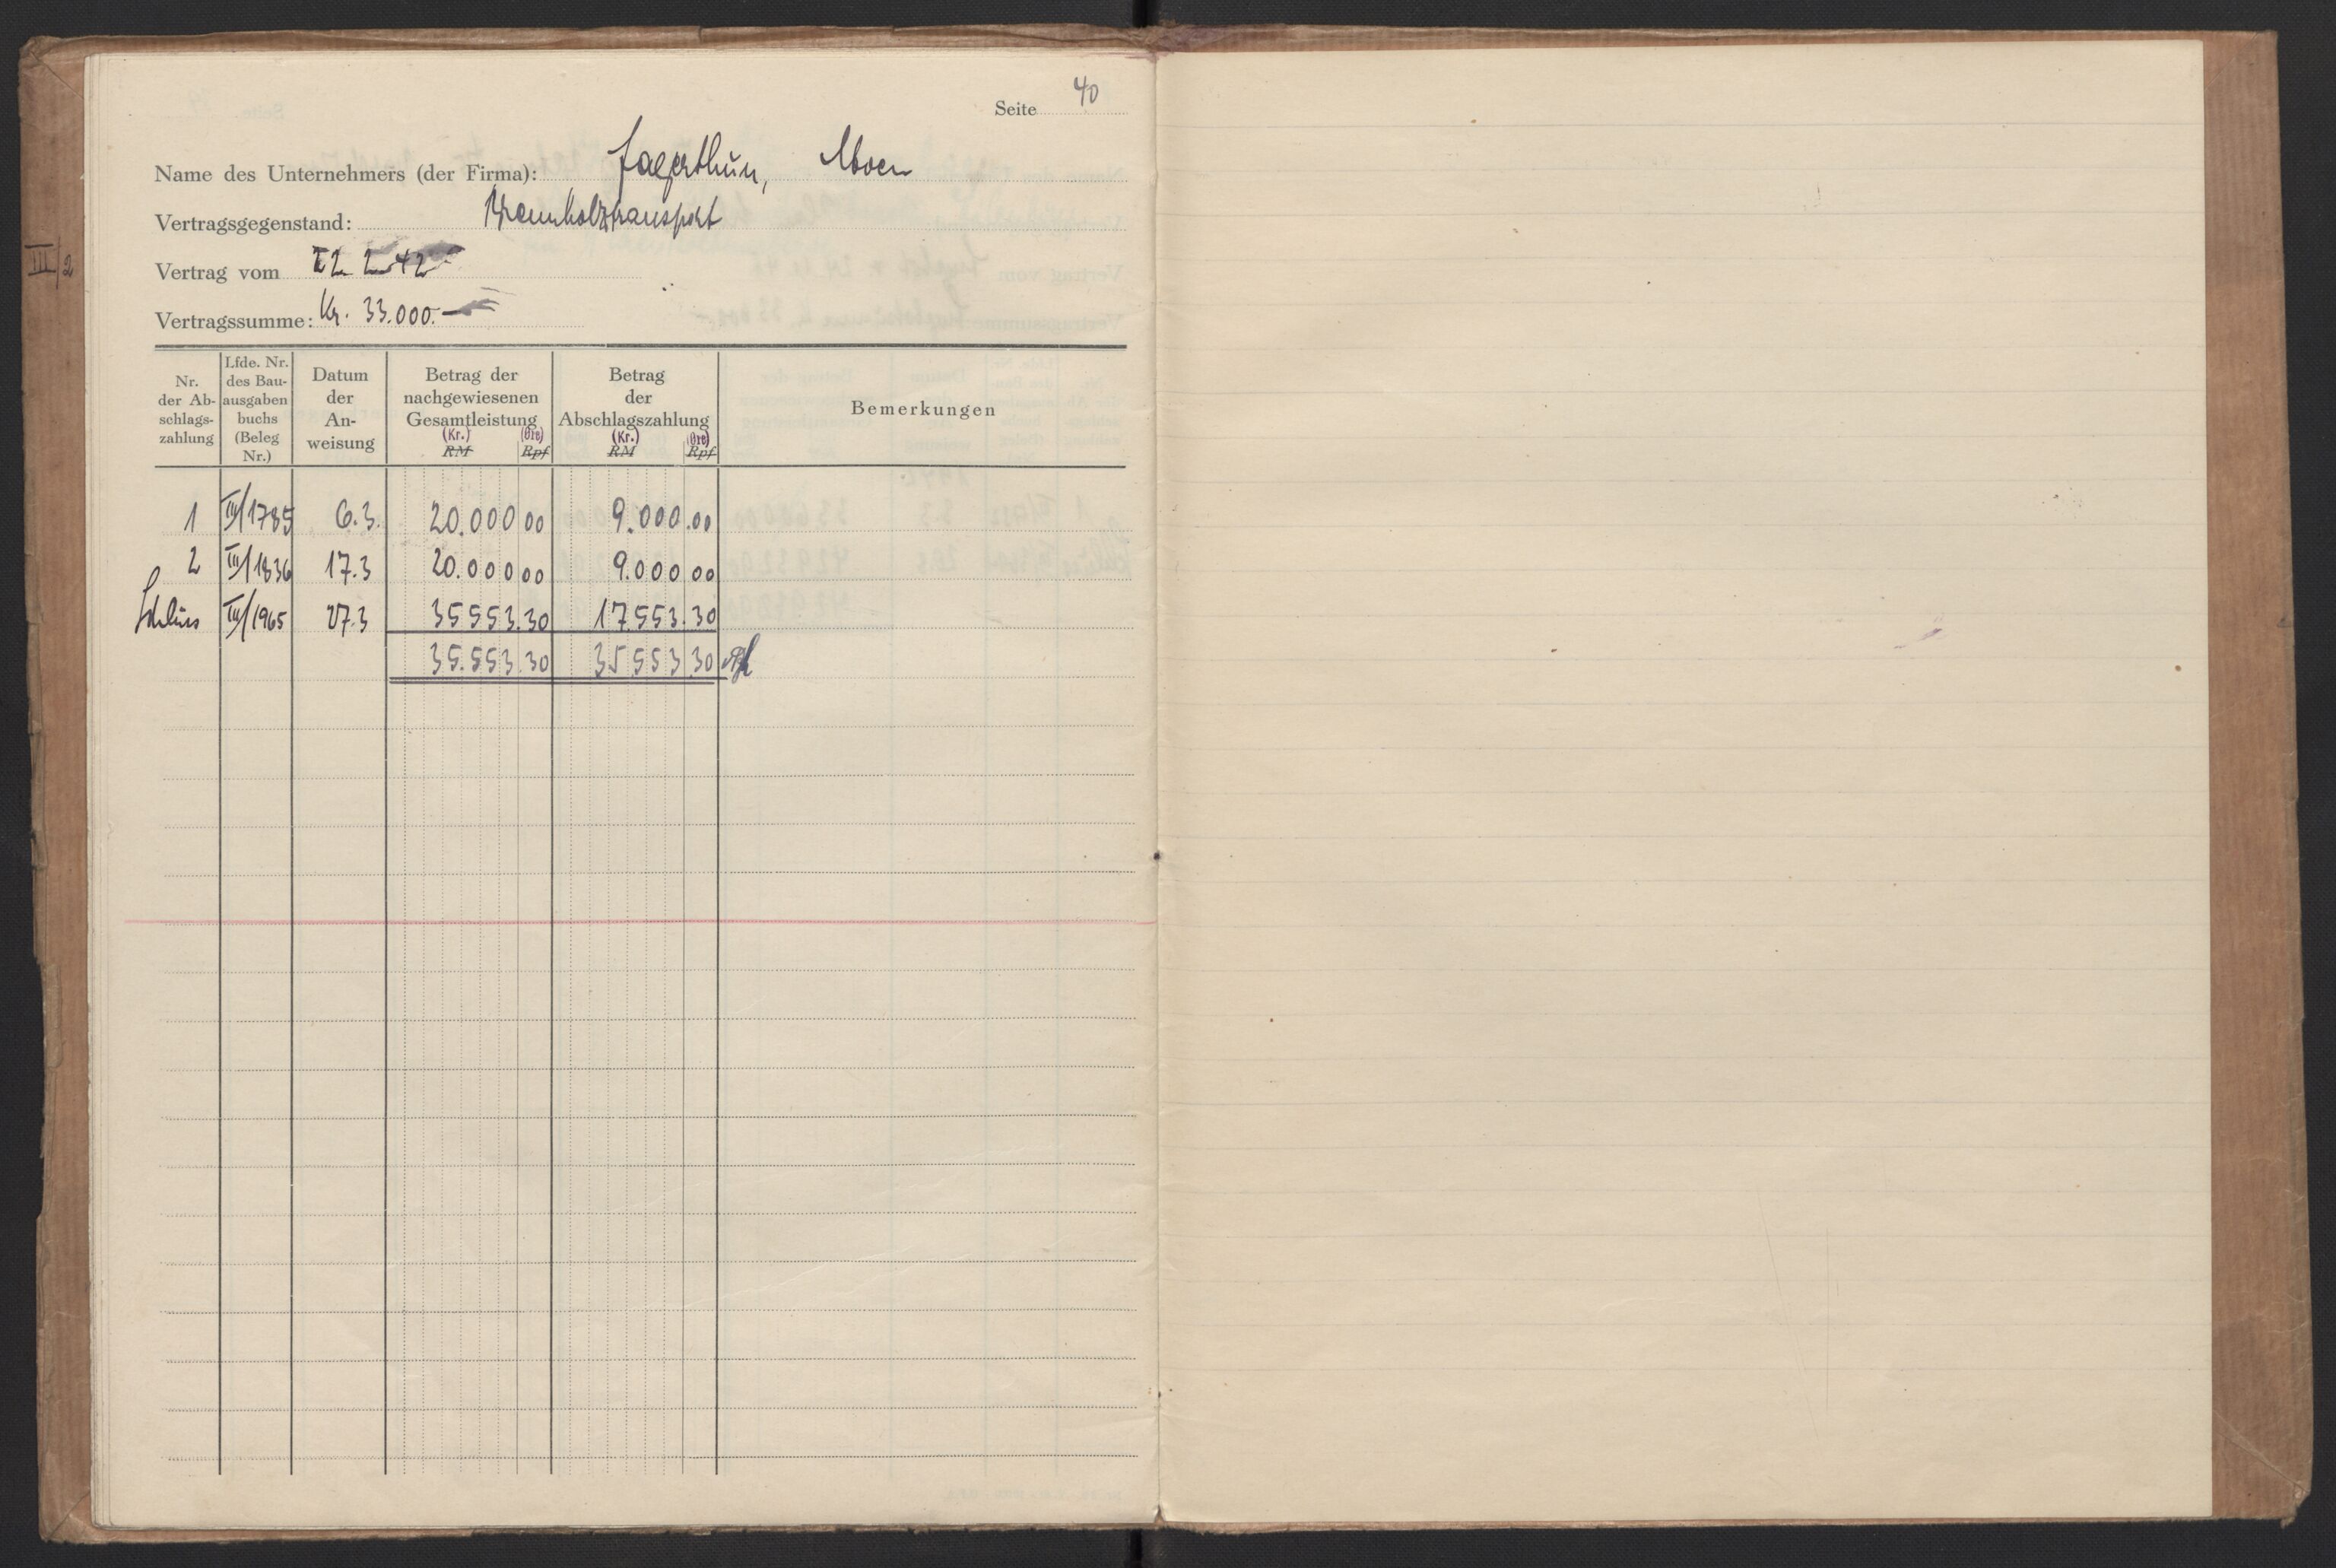 Seite 40
Name des Unternehmers (der Firma): Fagerthun, Moen
Vertragsgegenstand: Brennholztransport
III/2
Vertrag vom 22. 2. 42
Vertragssumme: Kr. 33.000.-
Nr. der Ab- schlags- zahlung | Lfde. Nr. des Bau- ausgaben buchs (Beleg Nr.) | Datum der An- weisung | Betrag der nachgewiesenen Gesamtleistung (Kr.) RM (Øre) Rpf | Betrag der Abschlagszahlung (Kr.) RM (Øre) Rpf | Bemerkungen
1 III/1785 6.3. 20.000 00 9.000.00
2 III/1836 17.3 20.000 00 9.000 00
Schluss III/1965 27.3 35553.30 17.553.30
35.553.30 35553.30